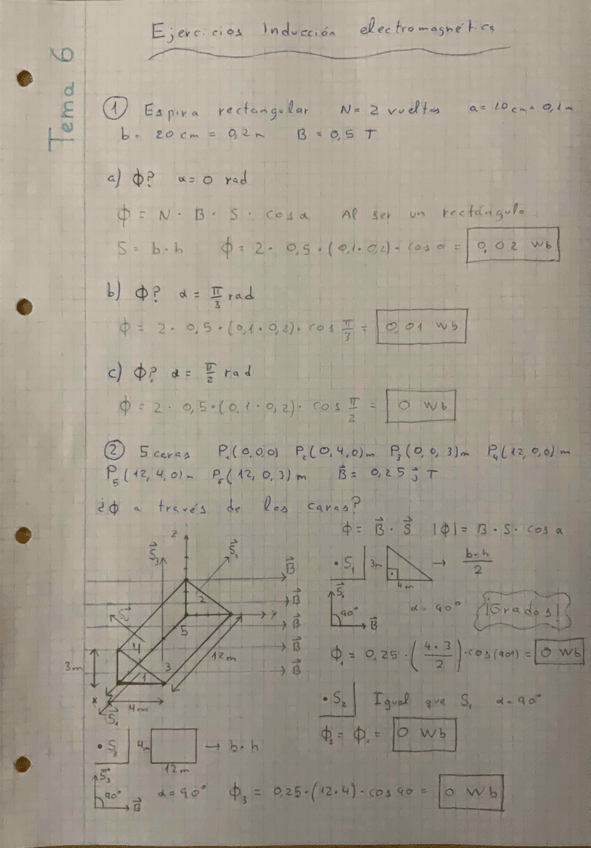 Ejercicios Inducción electromagnética
Tema 6
① Espira rectangular N = 2 vueltas a = 10 cm = 0,1 m
b = 20 cm = 0,2 m B = 0,5 T
a) ϕ? α = 0 rad
ϕ = N · B · S · cos α Al ser un rectángulo
S = b · h ϕ = 2 · 0,5 · (0,1 · 0,2) · cos 0 = 0,02 Wb
b) ϕ? α = π/3 rad
ϕ = 2 · 0,5 · (0,1 · 0,2) · cos π/3 = 0,01 Wb
c) ϕ? α = π/2 rad
ϕ = 2 · 0,5 · (0,1 · 0,2) · cos π/2 = 0 Wb
② 5 caras P₁(0,0,0) P₂(0,4,0)m P₃(0,0,3)m P₄(12,0,0)m
P₅(12,4,0)m P₆(12,0,3)m B⃗ = 0,25 j⃗ T
¿ϕ a través de las caras?
ϕ = B⃗ · S⃗ |ϕ| = B · S · cos α
• S₁ 3m 4m → b·h/2
S⃗₁ 90° B⃗ α = 90° |Grados|
ϕ₁ = 0,25 · (4·3/2) · cos(90º) = 0 Wb
z B⃗
B⃗
2 y B⃗
5
4 B⃗
3m 3 12m B⃗
1
x 4m
• S₂ Igual que S₁ α = 90°
ϕ₂ = ϕ₁ = 0 Wb
• S₃ 4m 12m → b·h
S⃗₃ 90° B⃗ α = 90° ϕ₃ = 0,25 · (12·4) · cos 90 = 0 Wb